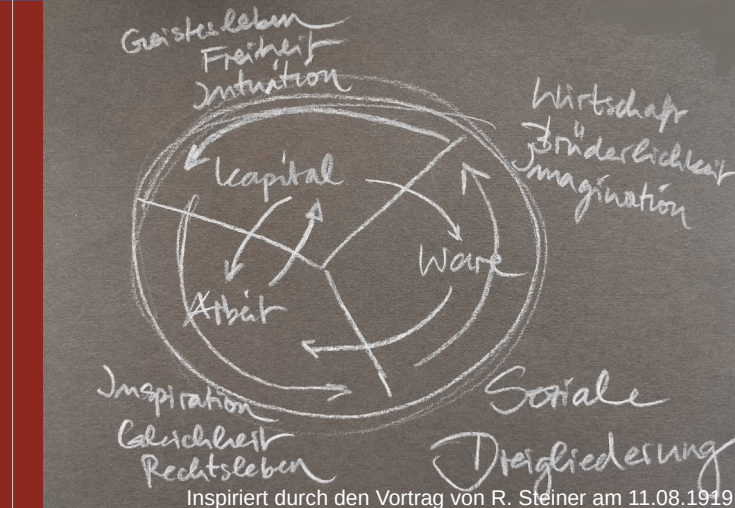 Geistesleben
Freiheit
Intuition
Wirtschaft
Brüderlichkeit
Imagination
Kapital
Ware
Arbeit
Inspiration
Gleichheit
Rechtsleben
Soziale
Dreigliederung
Inspiriert durch den Vortrag von R. Steiner am 11.08.1919